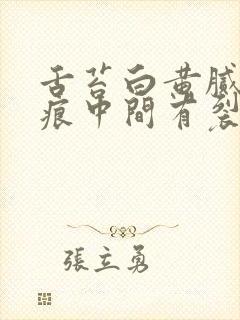 舌苔白黄腻
痕中間有裂
張立勇